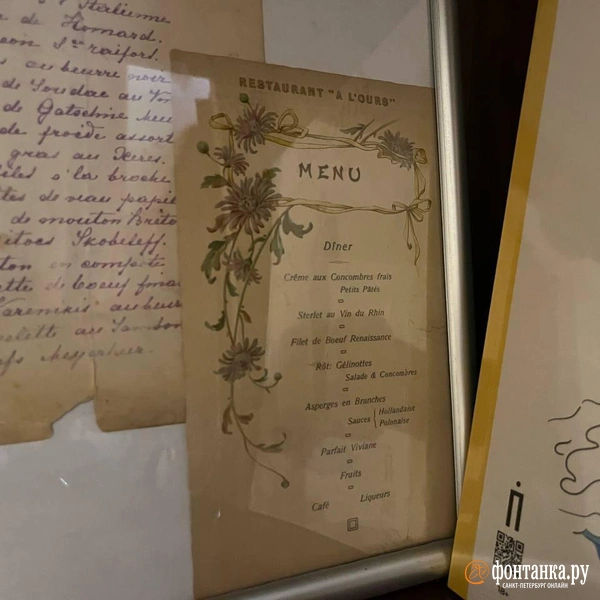 Italienne
de Homard.
au beurre noir
de Soudac au
de Gatschine
de froide assort
gras au Xeres.
à la broche
de veau papil
de mouton
Bitocs Skobeleff.
en compote
de boeuf
au beur
RESTAURANT "A L'OURS"
MENU
Dîner
Crême aux Concombres frais
Petits Pâtés
Sterlet au Vin du Rhin
Filet de Boeuf Renaissance
Rôt: Gélinottes
Salade & Concombres
Asperges en Branches
Sauces { Hollandaise
Polonaise
Parfait Viviane
Fruits
Café Liqueurs
фонтанка.ру
САНКТ-ПЕТЕРБУРГ ОНЛАЙН
18+